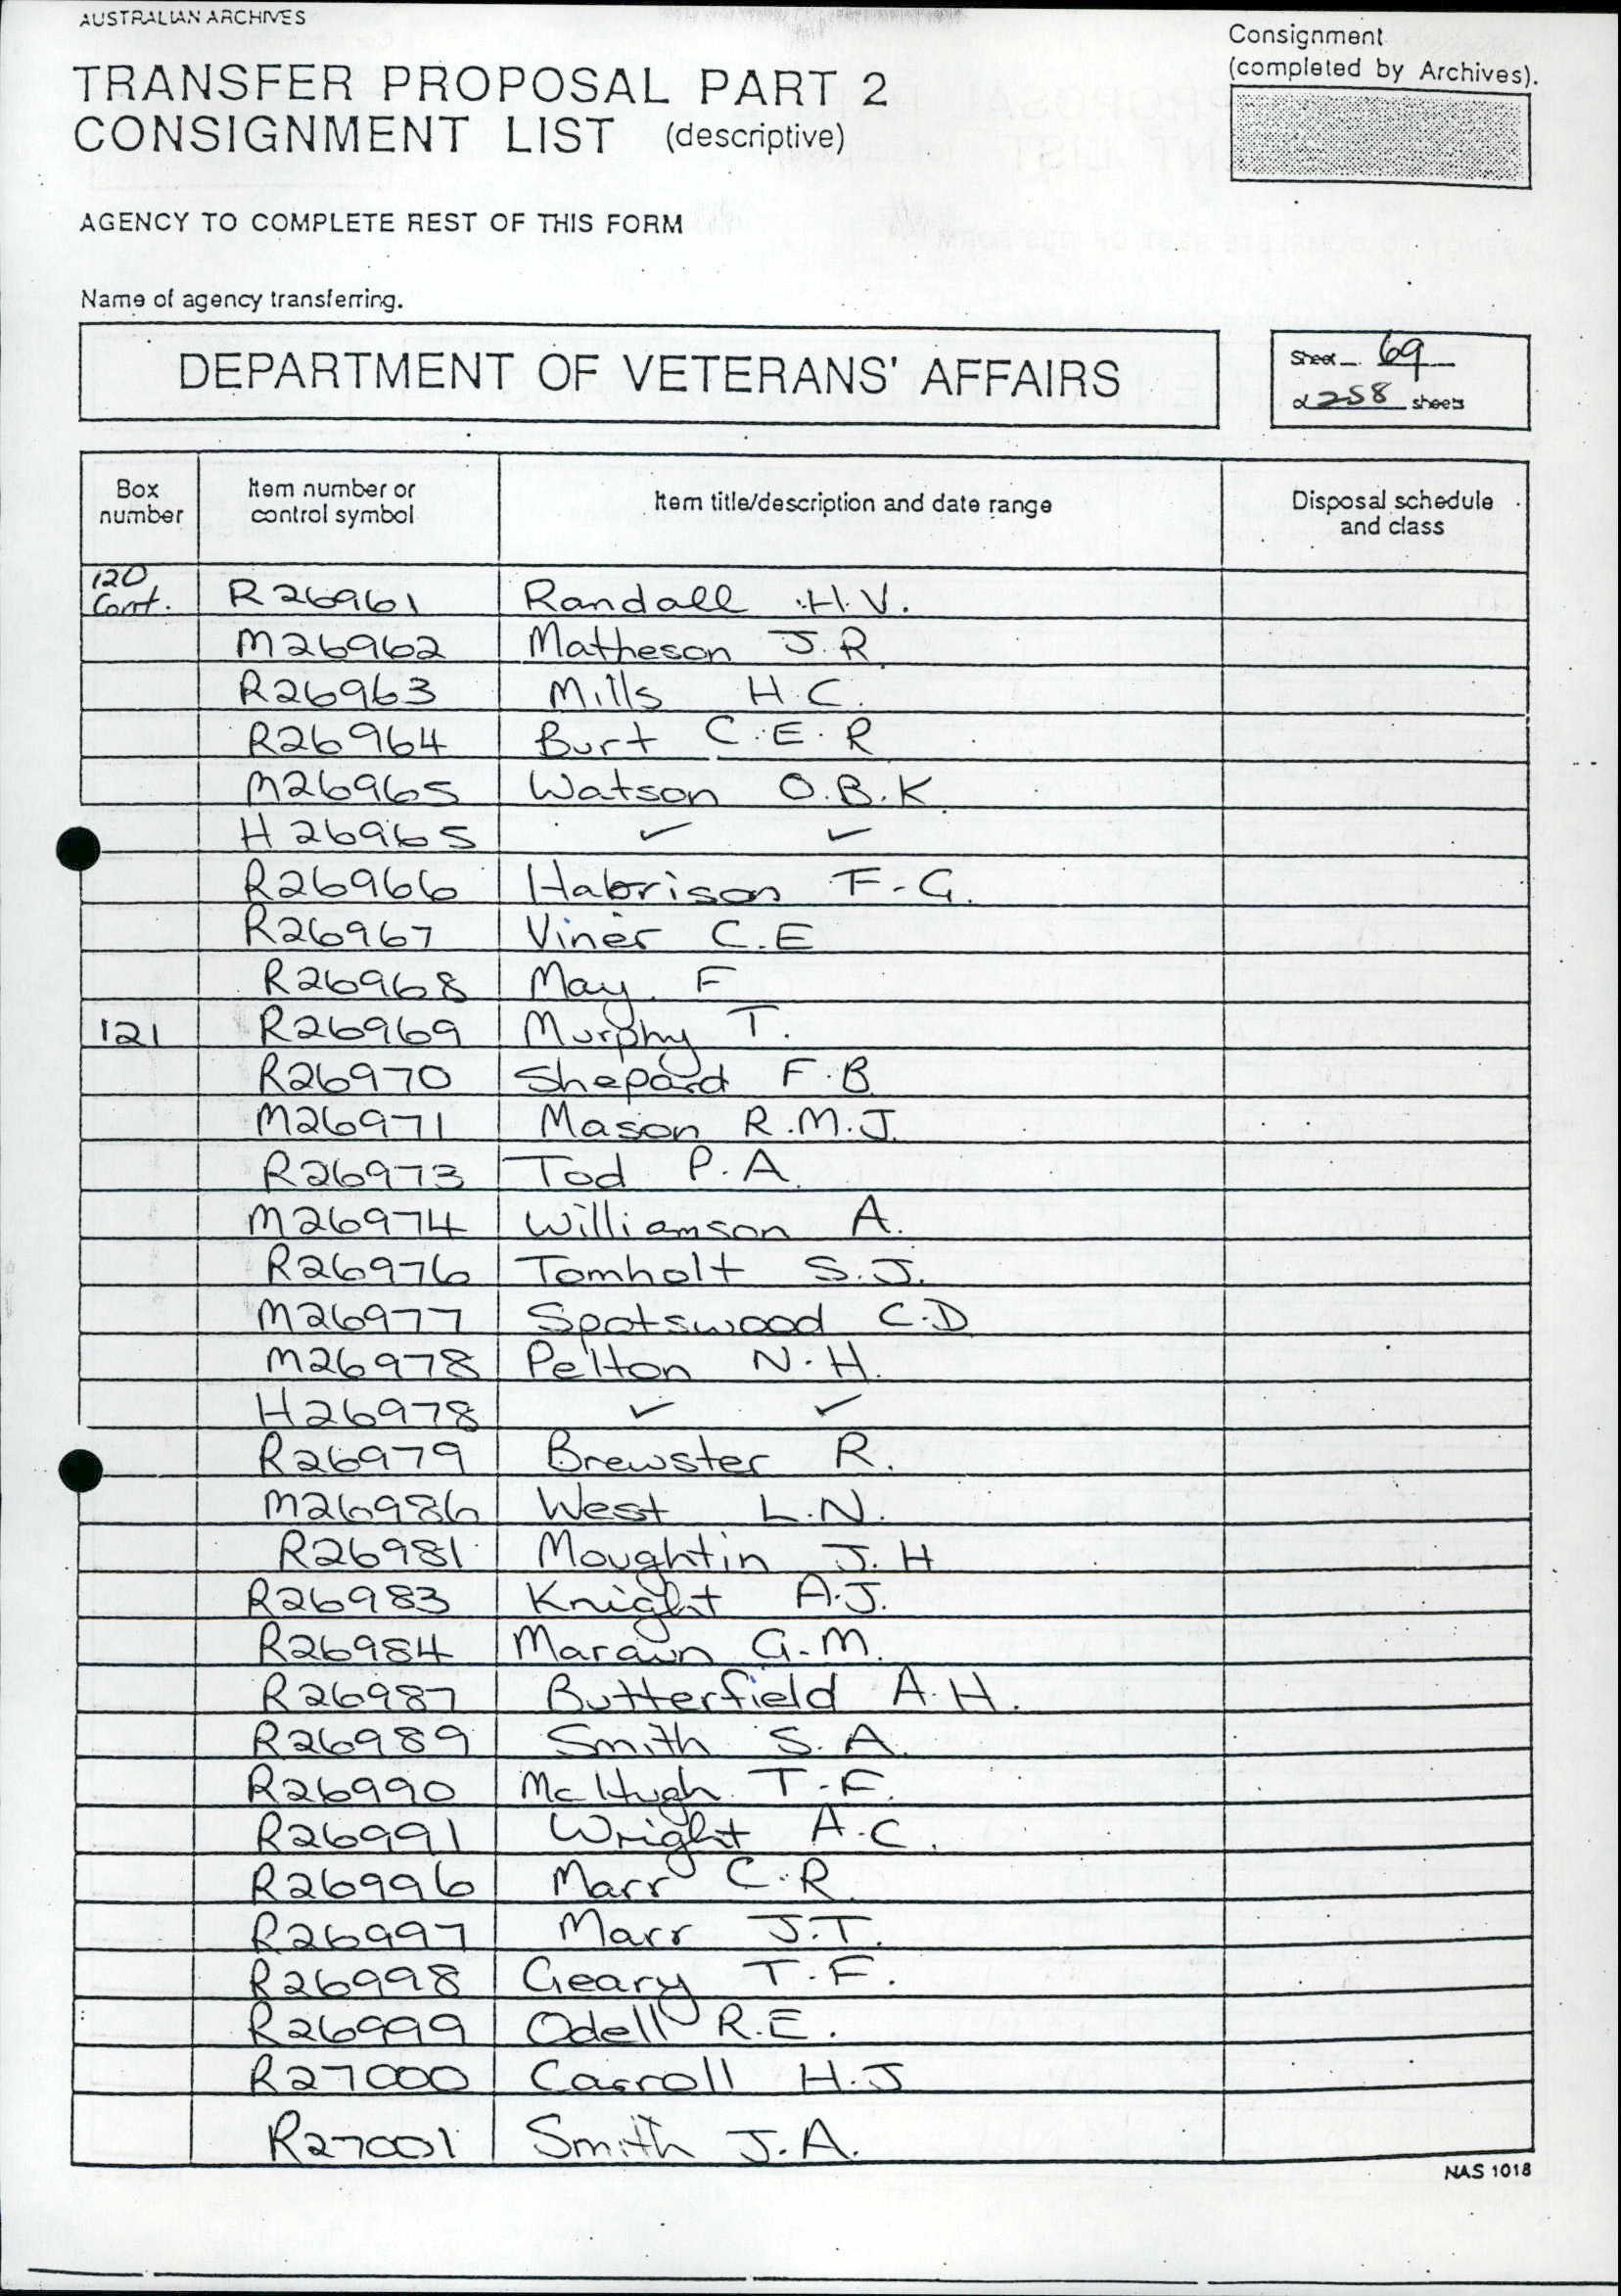 AUSTRALIAN ARCHIVES
TRANSFER PROPOSAL PART 2
CONSIGNMENT LIST (descriptive)
Consignment
(completed by Archives).
AGENCY TO COMPLETE REST OF THIS FORM
Name of agency transferring.
DEPARTMENT OF VETERANS' AFFAIRS
Sheet 69
of 258 sheets
Box number Item number or control symbol Item title/description and date range Disposal schedule and class
120 Cont. R26961 Randall H.V.
M26962 Matheson J.R
R26963 Mills H.C.
R26964 Burt C.E.R
M26965 Watson O.B.K
H26965 ✓ ✓
R26966 Habrison F.G.
R26967 Viner C.E
R26968 May F
121 R26969 Murphy T.
R26970 Shepard F.B
M26971 Mason R.M.J.
R26973 Tod P.A.
M26974 Williamson A.
R26976 Tomholt S.J.
M26977 Spotswood C.D
M26978 Pelton N.H.
H26978 ✓ ✓
R26979 Brewster R.
M26986 West L.N.
R26981 Moughtin J.H
R26983 Knight A.J.
R26984 G.M.
R26987 Butterfield A.H.
R26989 Smith S.A.
R26990 McHugh T.F.
R26991 Wright A.C.
R26996 Marr C.R.
R26997 Marr J.T.
R26998 Geary T.F.
R26999 Odell R.E.
R27000 Carroll H.J
R27001 Smith J.A.
NAS 1018